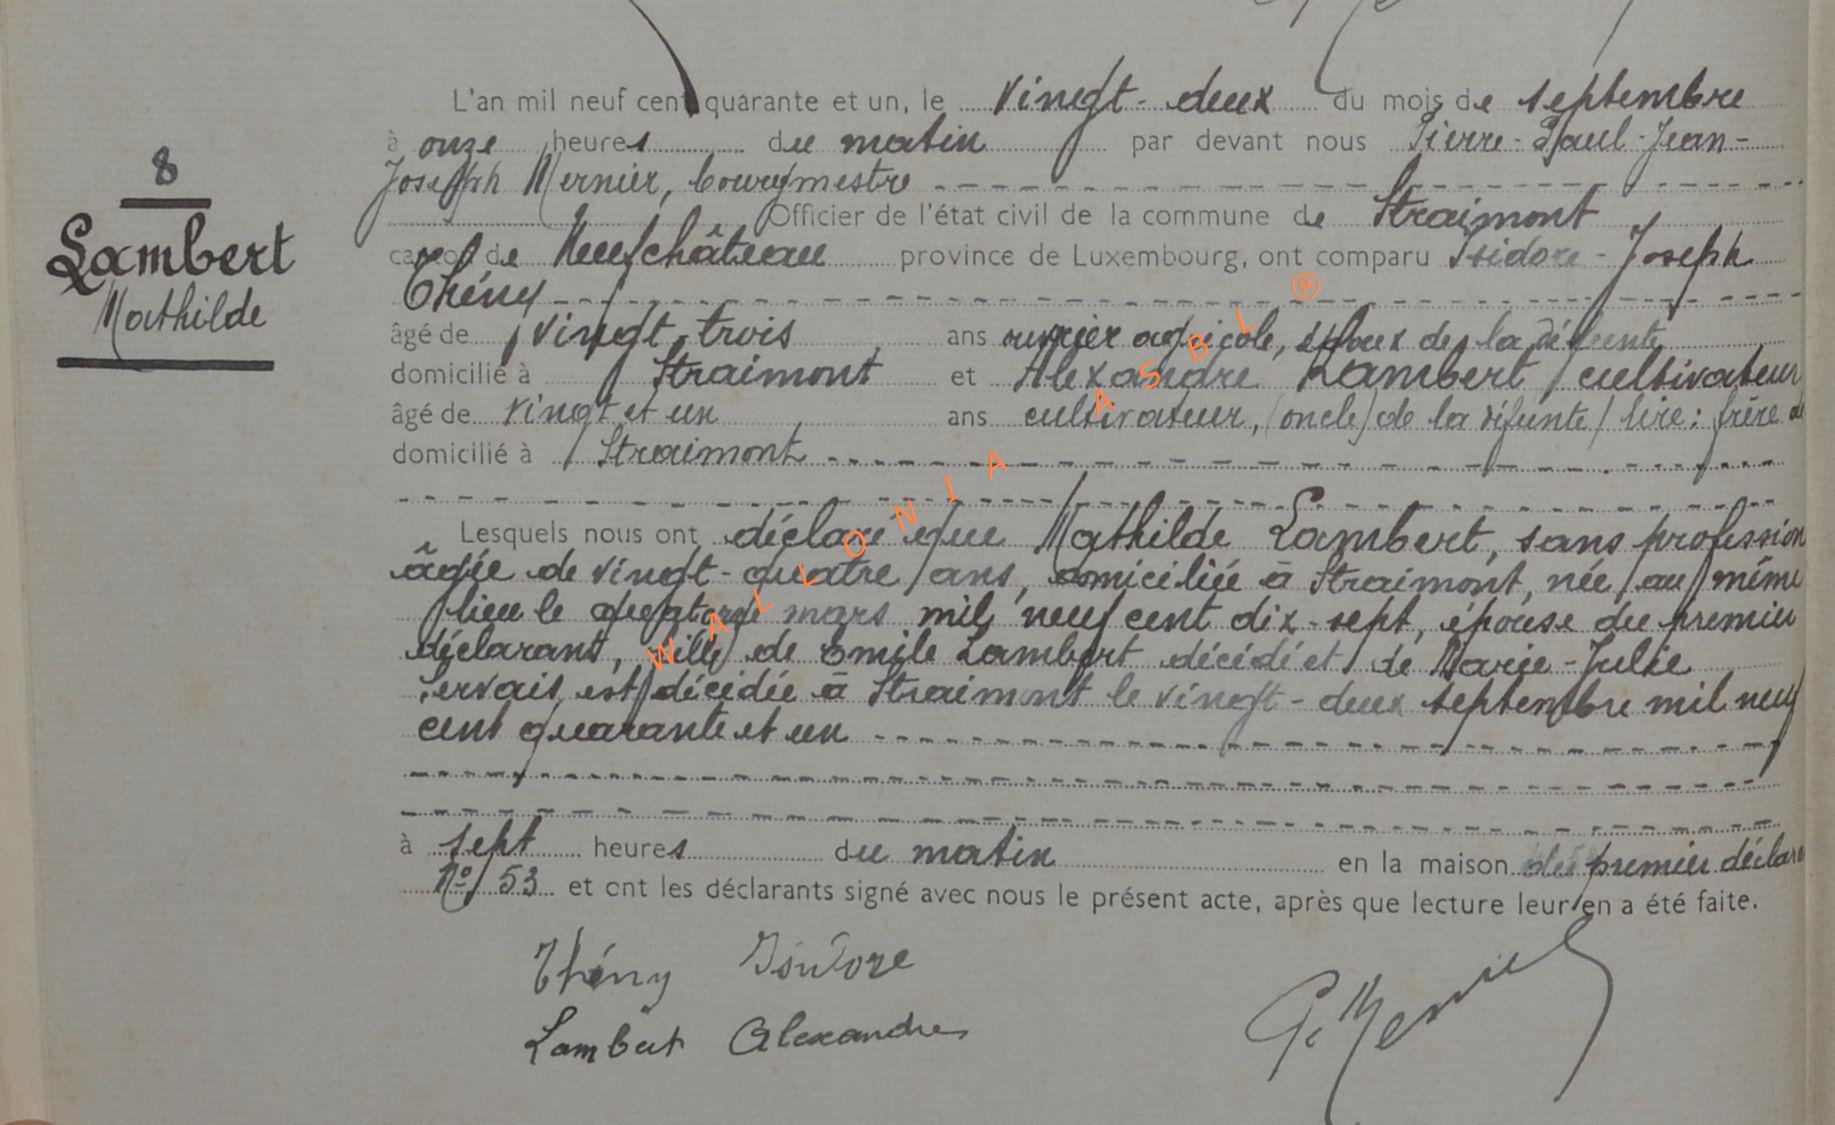 L'an mil neuf cent quarante et un, le vingt-deux du mois de septembre
à onze heures du matin par devant nous Pierre-Paul-Jean-
Joseph Mernier, bourgmestre
Officier de l'état civil de la commune de Straimont
8
Lambert
Mathilde
canton de Neufchâteau province de Luxembourg, ont comparu Isidore-Joseph
Thény
âgé de vingt-trois ans ouvrier agricole, époux de la défunte
domicilié à Straimont et Alexandre Lambert cultivateur
âgé de vingt et un ans cultivateur, (oncle) de la défunte / lire: frère de
domicilié à Straimont
Lesquels nous ont déclaré que Mathilde Lambert, sans profession
âgée de vingt-quatre ans, domiciliée à Straimont, née au même
lieu le quatorze mars mil neuf cent dix-sept, épouse du premier
déclarant, fille de Emile Lambert décédé et de Marie-Julie
Servais, est décédée à Straimont le vingt-deux septembre mil neuf
cent quarante et un
à sept heures du matin en la maison du premier déclara
No 53 et ont les déclarants signé avec nous le présent acte, après que lecture leur en a été faite.
Thény Isidore
Lambert Alexandre
P. Mernier
WALLONIA ASBL ®